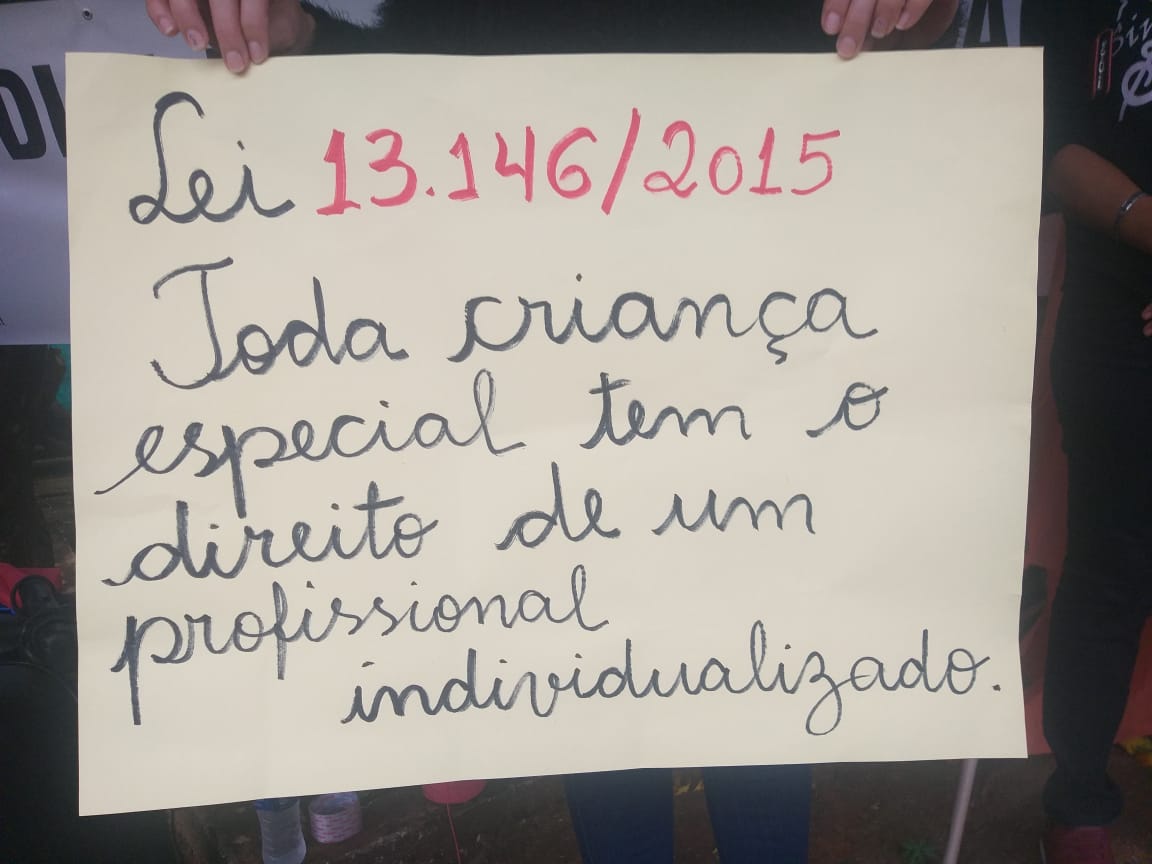 Lei 13.146/2015
Toda criança
especial tem o
direito de um
profissional
individualizado.